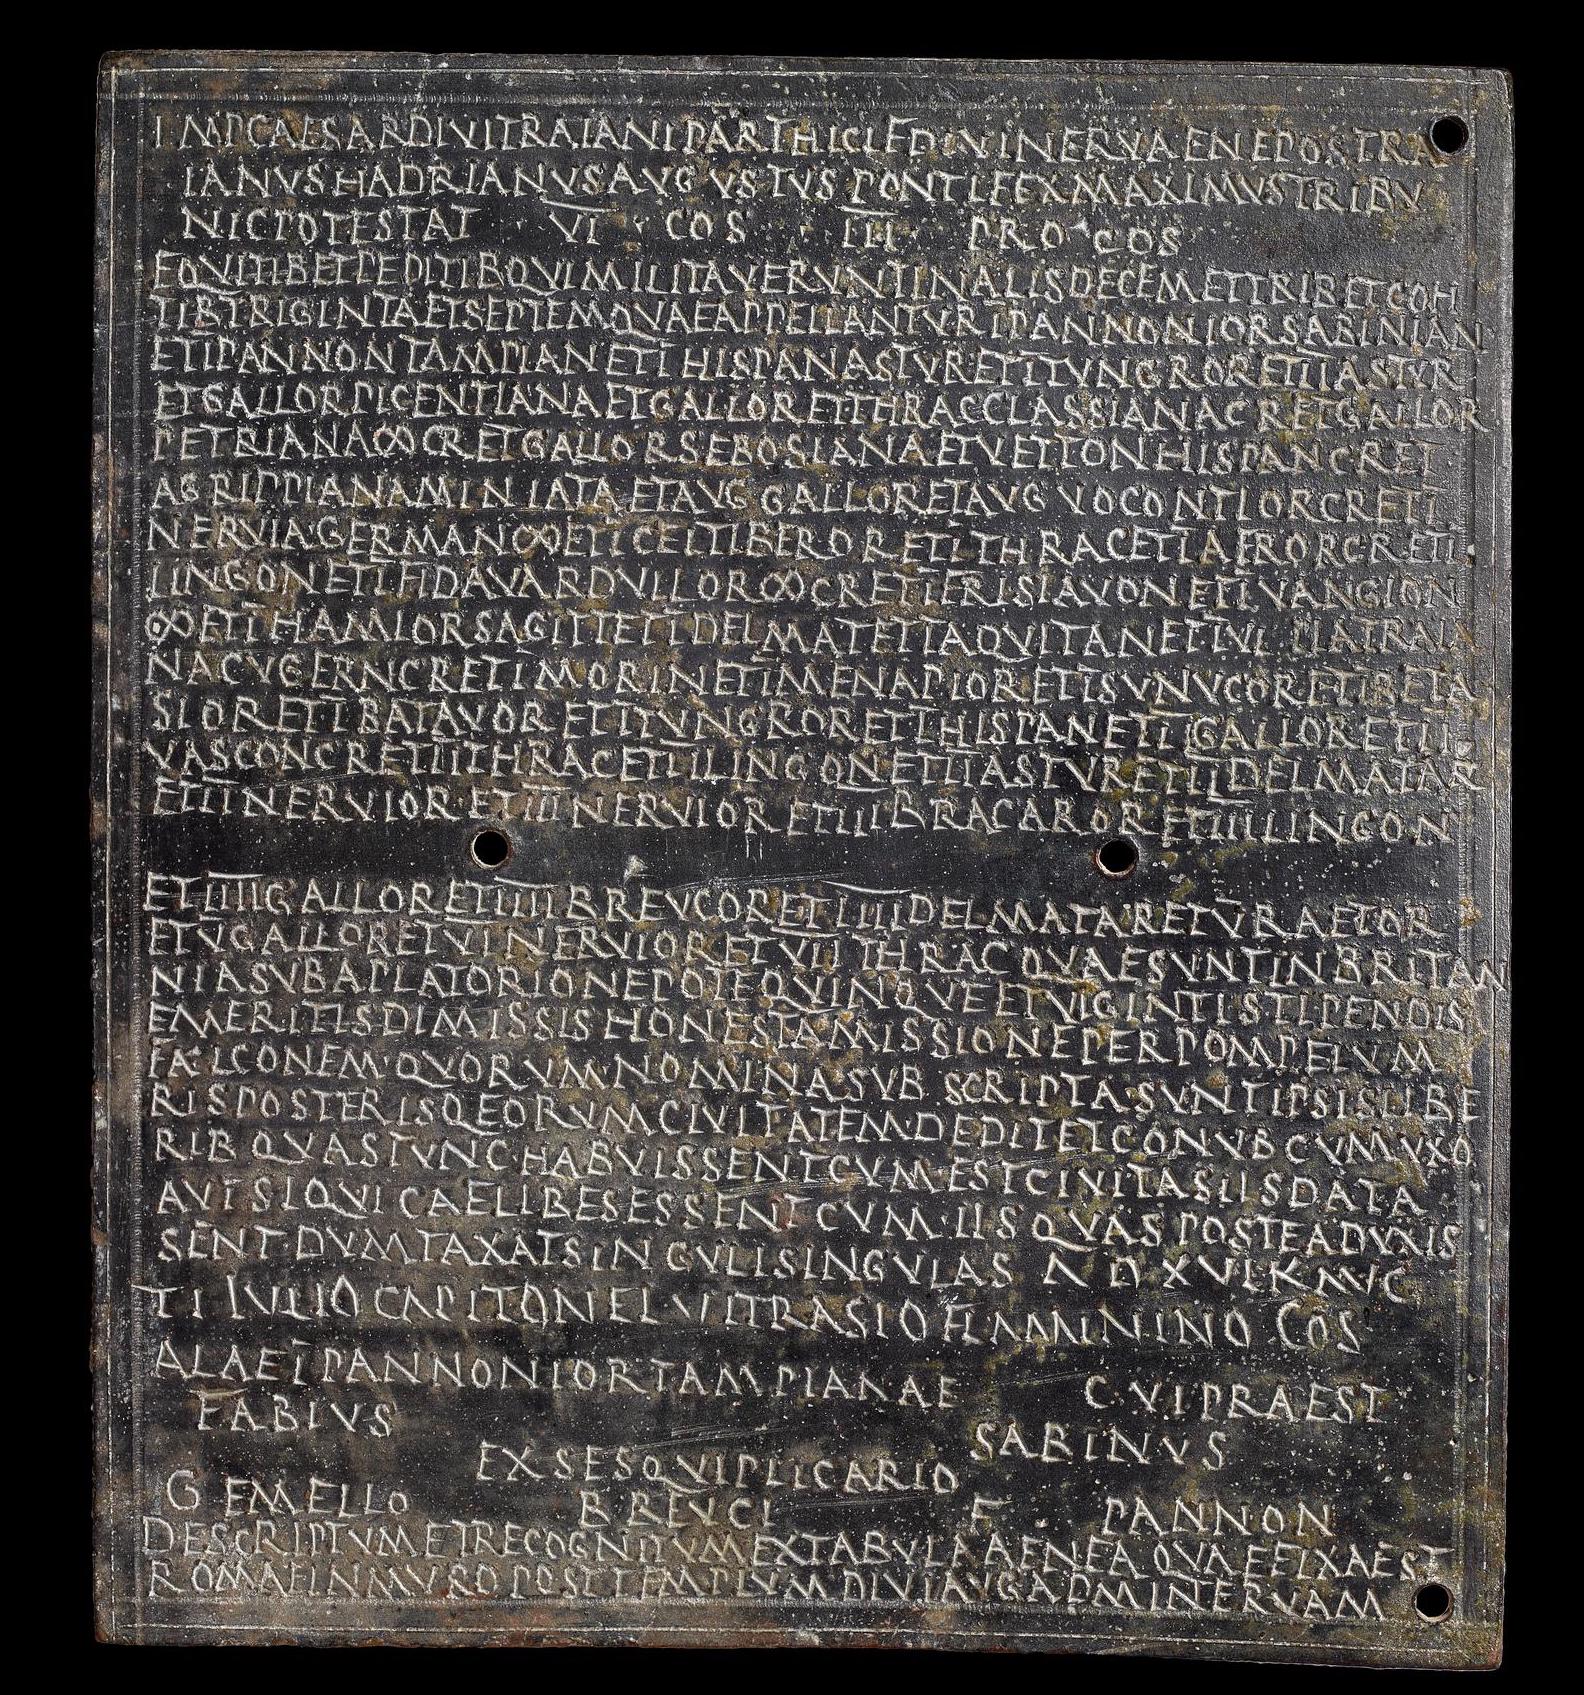 IMP CAESAR DIVI TRAIANI PARTHICI F DIVI NERVAE NEPOS TRA
IANVS HADRIANVS AVGVSTVS PONTIFEX MAXIMVS TRIBV
NIC POTESTAT VI COS III PRO COS
EQVITIB ET PEDITIB QVI MILITAVERVNT IN ALIS DECEM ET TRIB ET COH
TIB TRIGINTA ET SEPTEM QVAE APPELLANTVR I PANNONIOR SABINIAN
ET I PANNON TAMPIAN ET I HISPAN ASTVR ET I TVNGROR ET II ASTVR
ET GALLOR PICENTIANA ET GALLOR ET THRAC CLASSIANA C R ET GALLOR
PETRIANA ∞ C R ET GALLOR SEBOSIANA ET VETTON HISPAN C R ET
AGRIPPIANA MINIATA ET AVG GALLOR ET AVG VOCONTIOR C R ET I
NERVIA GERMAN ∞ ET I CELTIBEROR ET I THRAC ET I AFROR C R ET I
LINGON ET I FIDA VARDVLLOR ∞ C R ET I FRISIAVON ET I VANGION
∞ ET I HAMIOR SAGITT ET I DELMAT ET I AQVITAN ET I VLPIA TRAIA
NA CVGERN C R ET I MORIN ET I MENAPIOR ET I SVNVCOR ET I BETA
SIOR ET I BATAVOR ET I TVNGROR ET I HISPAN ET II GALLOR ET II
VASCON C R ET II THRAC ET II LINGON ET II ASTVR ET II DELMATAR
ET II NERVIOR ET III NERVIOR ET III BRACAROR ET III LINGON
ET IIII GALLOR ET IIII BREVCOR ET IIII DELMATAR ET V RAETOR
ET V GALLOR ET VI NERVIOR ET VII THRAC QVAE SVNT IN BRITAN
NIA SVB A PLATORIO NEPOTE QVINQVE ET VIGINTI STIPENDIS
EMERITIS DIMISSIS HONESTA MISSIONE PER POMPEIVM
FALCONEM QVORVM NOMINA SVBSCRIPTA SVNT IPSIS LIBE
RIS POSTERISQ EORVM CIVITATEM DEDIT ET CONVB CVM VXO
RIB QVAS TVNC HABVISSENT CVM EST CIVITAS IIS DATA
AVT SI QVI CAELIBES ESSENT CVM IIS QVAS POSTEA DVXIS
SENT DVMTAXAT SINGVLI SINGVLAS A D XVI K AVG
TI IVLIO CAPITONE L VITRASIO FLAMININO COS
ALAE I PANNONIOR TAMPIANAE CVI PRAEST
FABIVS SABINVS
EX SESQVIPLICARIO
GEMELLO BREVCI F PANNON
DESCRIPTVM ET RECOGNITVM EX TABVLA AENEA QVAE FIXA EST
ROMAE IN MVRO POST TEMPLVM DIVI AVG AD MINERVAM